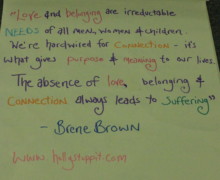 "Love and belonging are irreductable
NEEDS of all men, women & children.
We're hardwired for Connection - it's
what gives purpose & meaning to our lives.
The absence of love, belonging &
CONNECTION always leads to Suffering"
- Brene Brown
www.hollystoppit.com